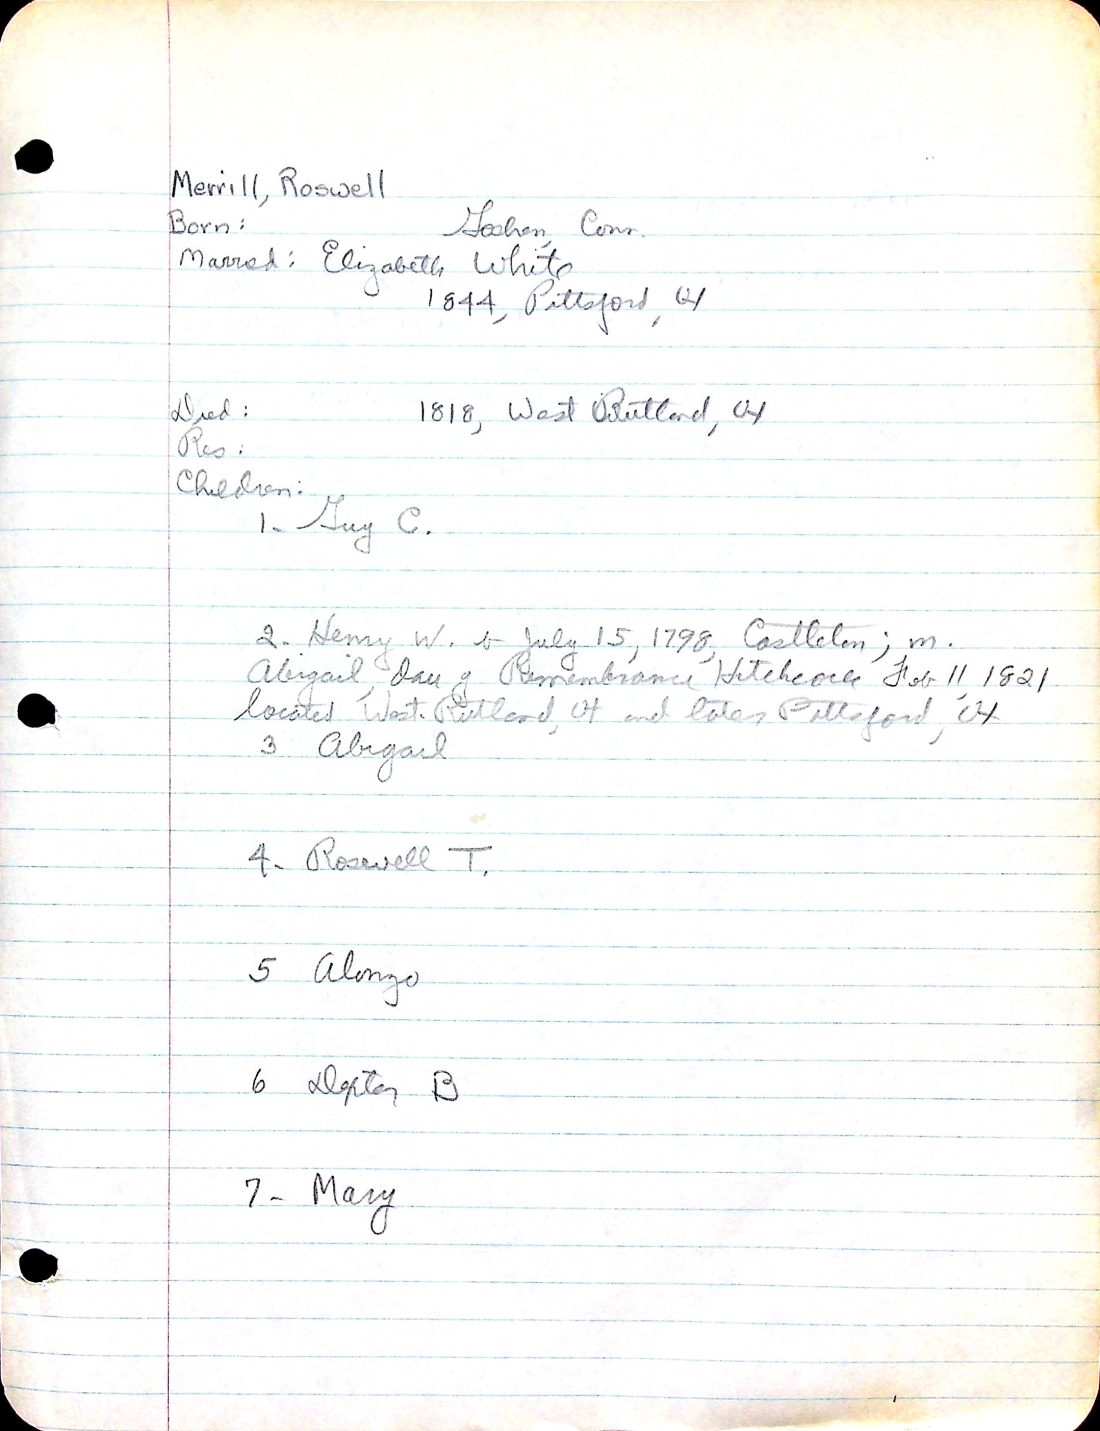 Merrill, Roswell
Born: Goshen, Conn.
Married: Elizabeth White
1844, Pittsford, Vt
Died: 1818, West Rutland, Vt
Res:
Children:
1- Guy C.
2- Henry W. b July 15, 1798, Castleton; m.
Abigail, dau of Remembrance Hitchcock Feb 11, 1821
located West Rutland, Vt and later Pittsford, Vt
3 Abigail
4- Rosewell T.
5 Alonzo
6 B
7- Mary